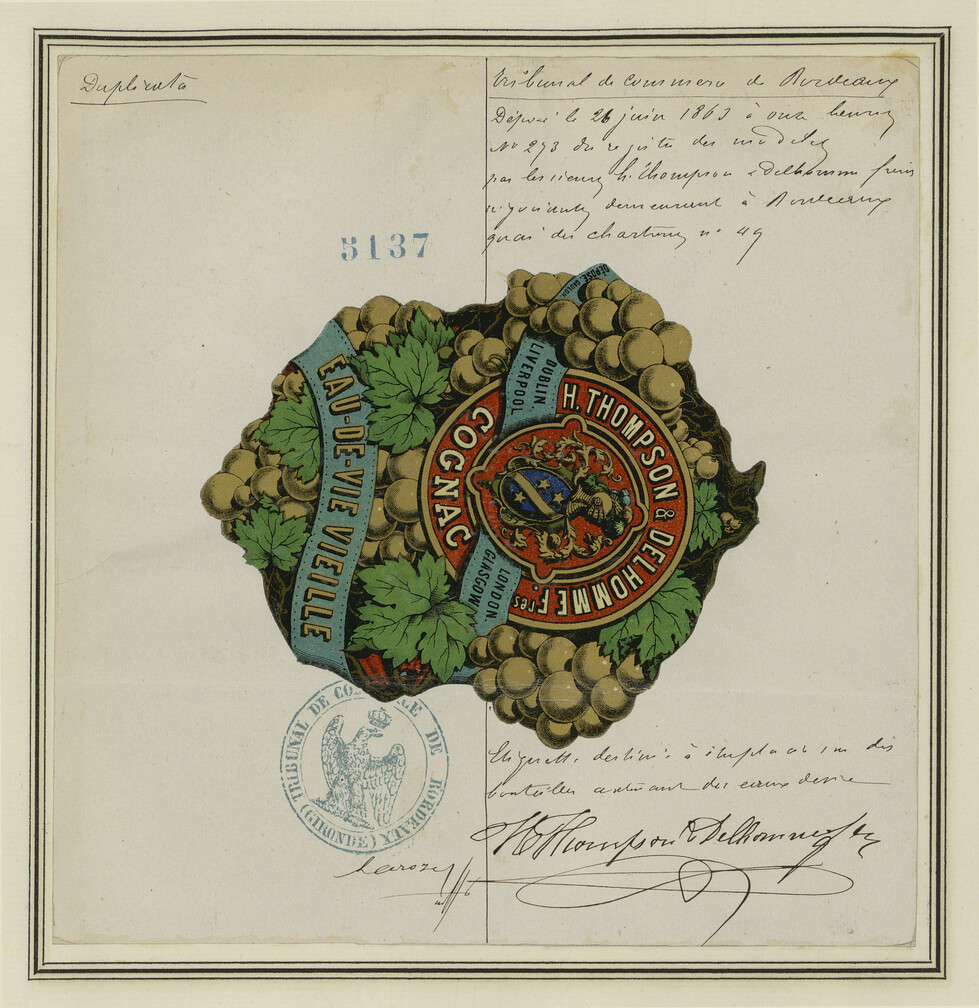 Duplicata
Tribunal de commerce de Bordeaux
Déposé le 26 juin 1863 à onze heures
No 293 du registre des modèles
par les sieurs H. Thompson & Delhomme frères
négociants demeurant à Bordeaux
quai des chartrons no 49
5137
DÉPOSÉ
DUBLIN
LIVERPOOL
EAU-DE-VIE VIEILLE
COGNAC
H. THOMPSON & DELHOMME Fres
LONDON
GLASGOW
TRIBUNAL DE COMMERCE DE BORDEAUX
(GIRONDE)
Etiquette destinée à être placée sur des
bouteilles contenant des eaux de vie
H Thompson & Delhomme frs